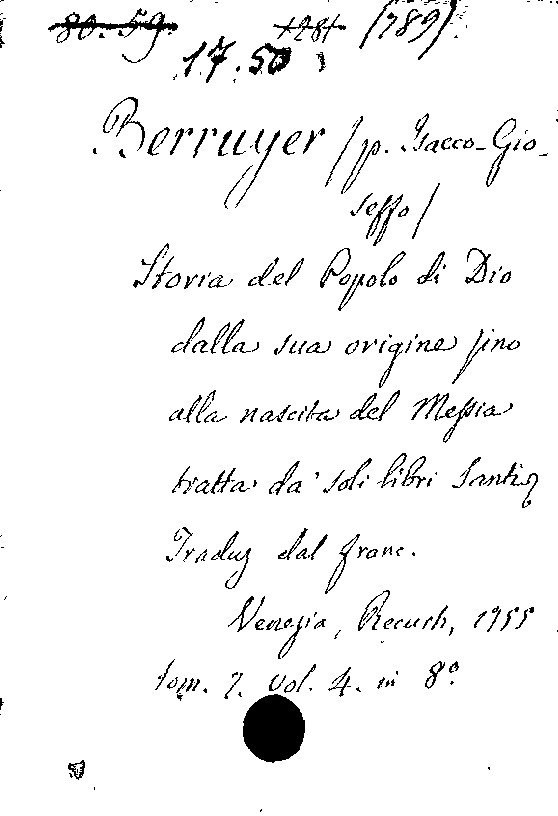 80.59. +28+ (789)
17.50
Berruyer /p. Isacco-Gio-
seffo/
Storia del Popolo di Dio
dalla sua origine fino
alla nascita del Messia
tratta da' soli libri Santi
Traduz dal franc.
Venezia, Recurti, 1755
tom. 7. vol. 4. in 8º